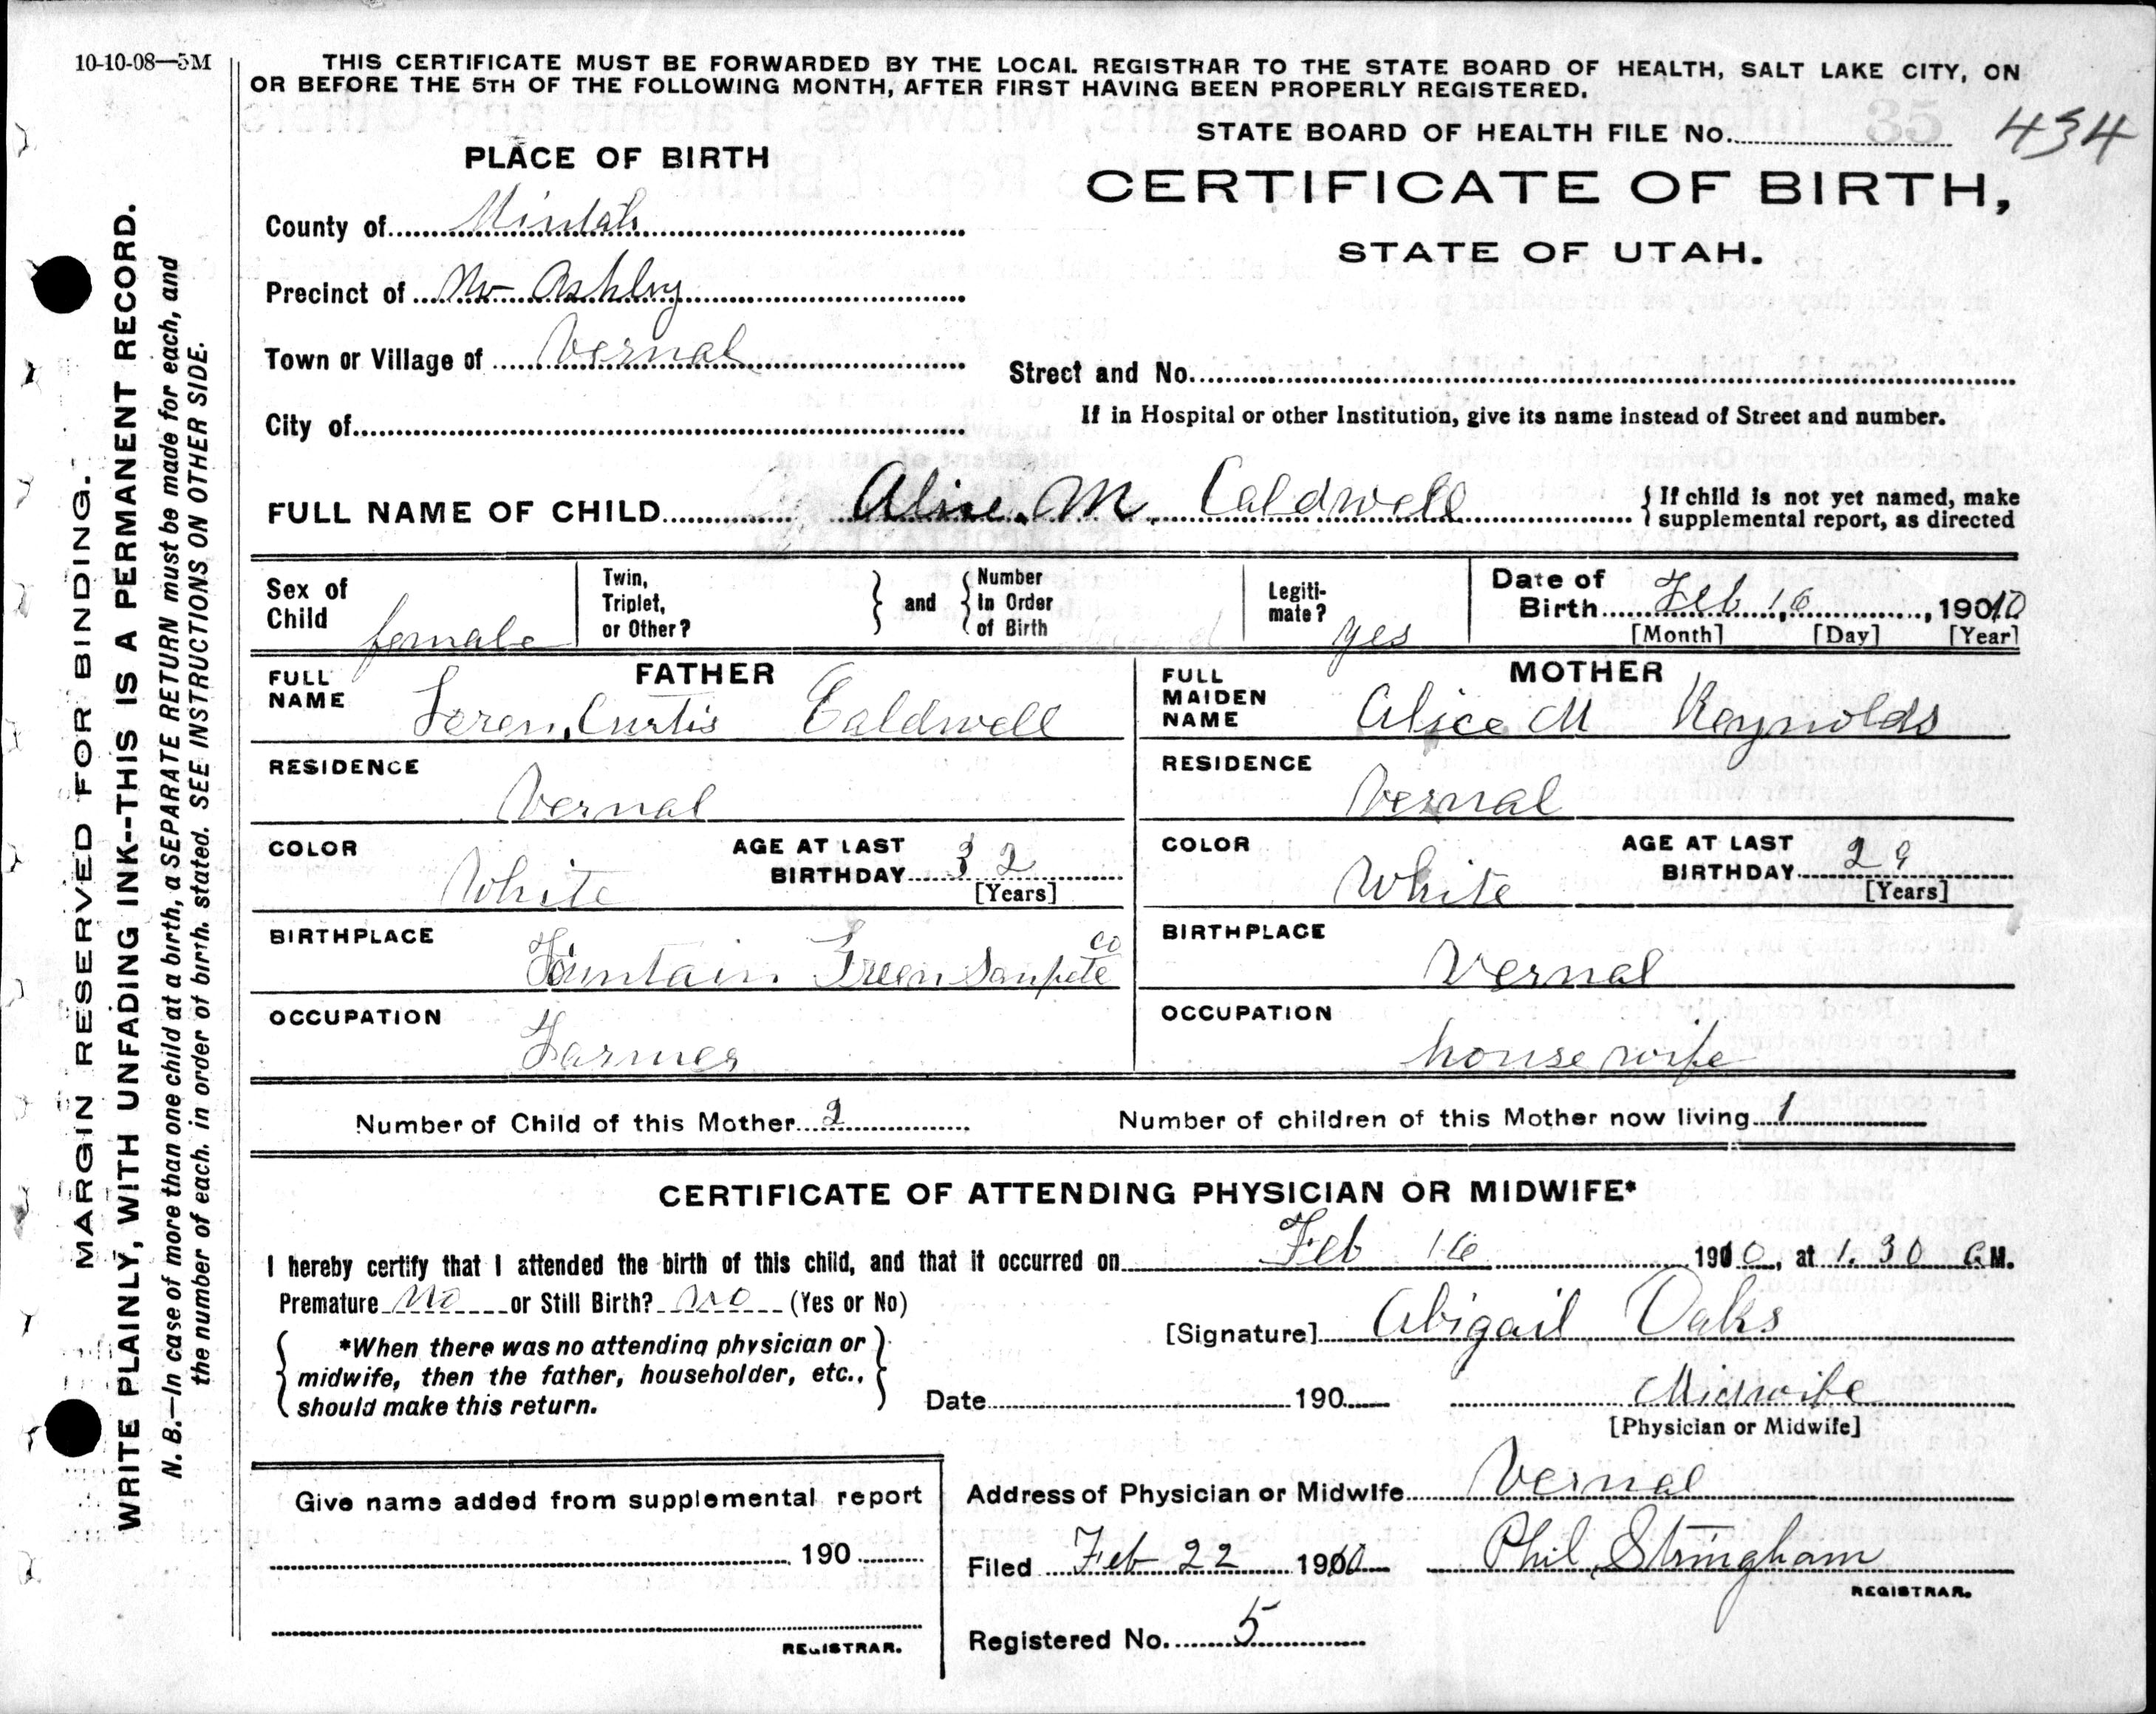 10-10-08—5M
THIS CERTIFICATE MUST BE FORWARDED BY THE LOCAL REGISTRAR TO THE STATE BOARD OF HEALTH, SALT LAKE CITY, ON
OR BEFORE THE 5TH OF THE FOLLOWING MONTH, AFTER FIRST HAVING BEEN PROPERLY REGISTERED.
STATE BOARD OF HEALTH FILE No. 35 434
PLACE OF BIRTH
CERTIFICATE OF BIRTH,
STATE OF UTAH.
County of Uintah
Precinct of Ashley
Town or Village of Vernal
Street and No.
City of
If in Hospital or other Institution, give its name instead of Street and number.
FULL NAME OF CHILD Alice M. Caldwell
{ If child is not yet named, make
supplemental report, as directed
Sex of Child female
Twin, Triplet, or Other? } and { Number In Order of Birth
Legiti-mate? yes
Date of Birth Feb 16, 1910
[Month] [Day] [Year]
FATHER
FULL NAME Loren Curtis Caldwell
RESIDENCE Vernal
COLOR White
AGE AT LAST BIRTHDAY 32 [Years]
BIRTHPLACE Fountain Green Sanpete Co
OCCUPATION Farmer
MOTHER
FULL MAIDEN NAME Alice M Reynolds
RESIDENCE Vernal
COLOR White
AGE AT LAST BIRTHDAY 29 [Years]
BIRTHPLACE Vernal
OCCUPATION house wife
Number of Child of this Mother 2
Number of children of this Mother now living 1
CERTIFICATE OF ATTENDING PHYSICIAN OR MIDWIFE*
I hereby certify that I attended the birth of this child, and that it occurred on Feb 16 1910, at 1.30 a M.
Premature no or Still Birth? no (Yes or No)
*When there was no attending physician or
midwife, then the father, householder, etc.,
should make this return.
[Signature] Abigail Oaks
Date 190
Midwife
[Physician or Midwife]
Give name added from supplemental report
190
REGISTRAR.
Address of Physician or Midwife Vernal
Filed Feb 22 1910 Phil Stringham
REGISTRAR.
Registered No. 5
MARGIN RESERVED FOR BINDING.
WRITE PLAINLY, WITH UNFADING INK--THIS IS A PERMANENT RECORD.
N. B.—In case of more than one child at a birth, a SEPARATE RETURN must be made for each, and
the number of each. in order of birth. stated. SEE INSTRUCTIONS ON OTHER SIDE.